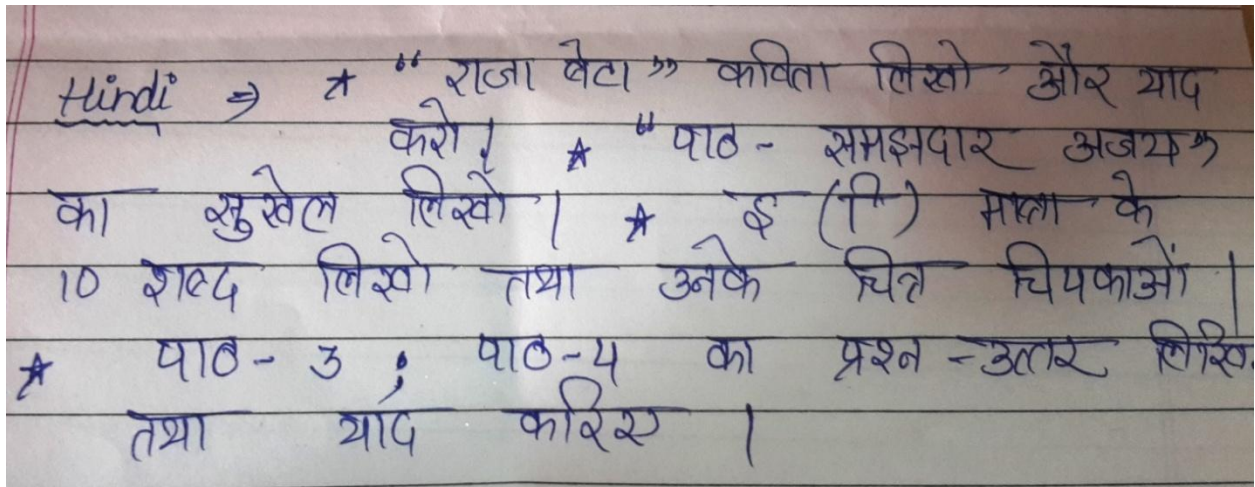 Hindi ⇒ ★ “राजा बेटा” कविता लिखो और याद
करो। ★ “पाठ - समझदार अजय”
का सुखेल लिखो। ★ इ (ि) मात्रा के
10 शब्द लिखो तथा उनके चित्र चिपकाओं।
★ पाठ - 3 ; पाठ - 4 का प्रश्न - उत्तर
तथा याद करिए।